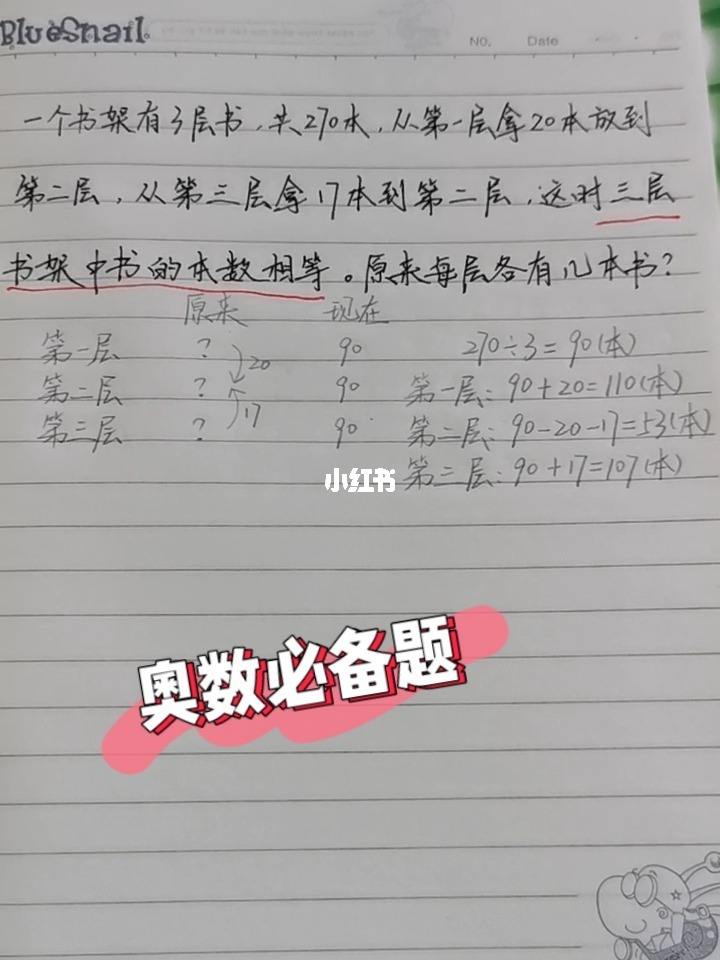 BlueSnail
No. Date
一个书架有3层书，共270本，从第一层拿20本放到
第二层，从第三层拿17本到第二层，这时三层
书架中书的本数相等。原来每层各有几本书？
原来 现在
第一层 ? 90 270÷3=90(本)
20
第二层 ? 90 第一层：90+20=110(本)
17
第三层 ? 90 第二层：90-20-17=53(本)
第三层：90+17=107(本)
小红书
奥数必备题